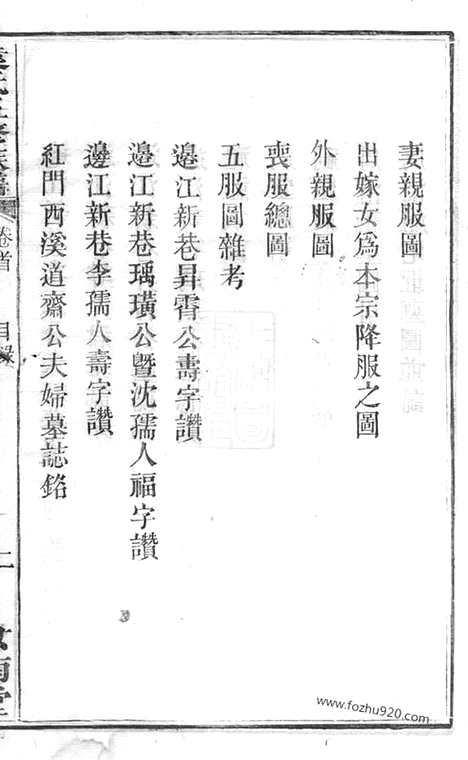 妻親服圖
出嫁女爲本宗降服之圖
外親服圖
喪服總圖
五服圖雜考
邊江新巷昇霄公壽字讚
邉江新巷瑀璜公曁沈孺人福字讚
邊江新巷李孺人壽字讚
紅門西溪道齋公夫婦墓誌銘
卷首 目錄
二
www.fozhu920.com